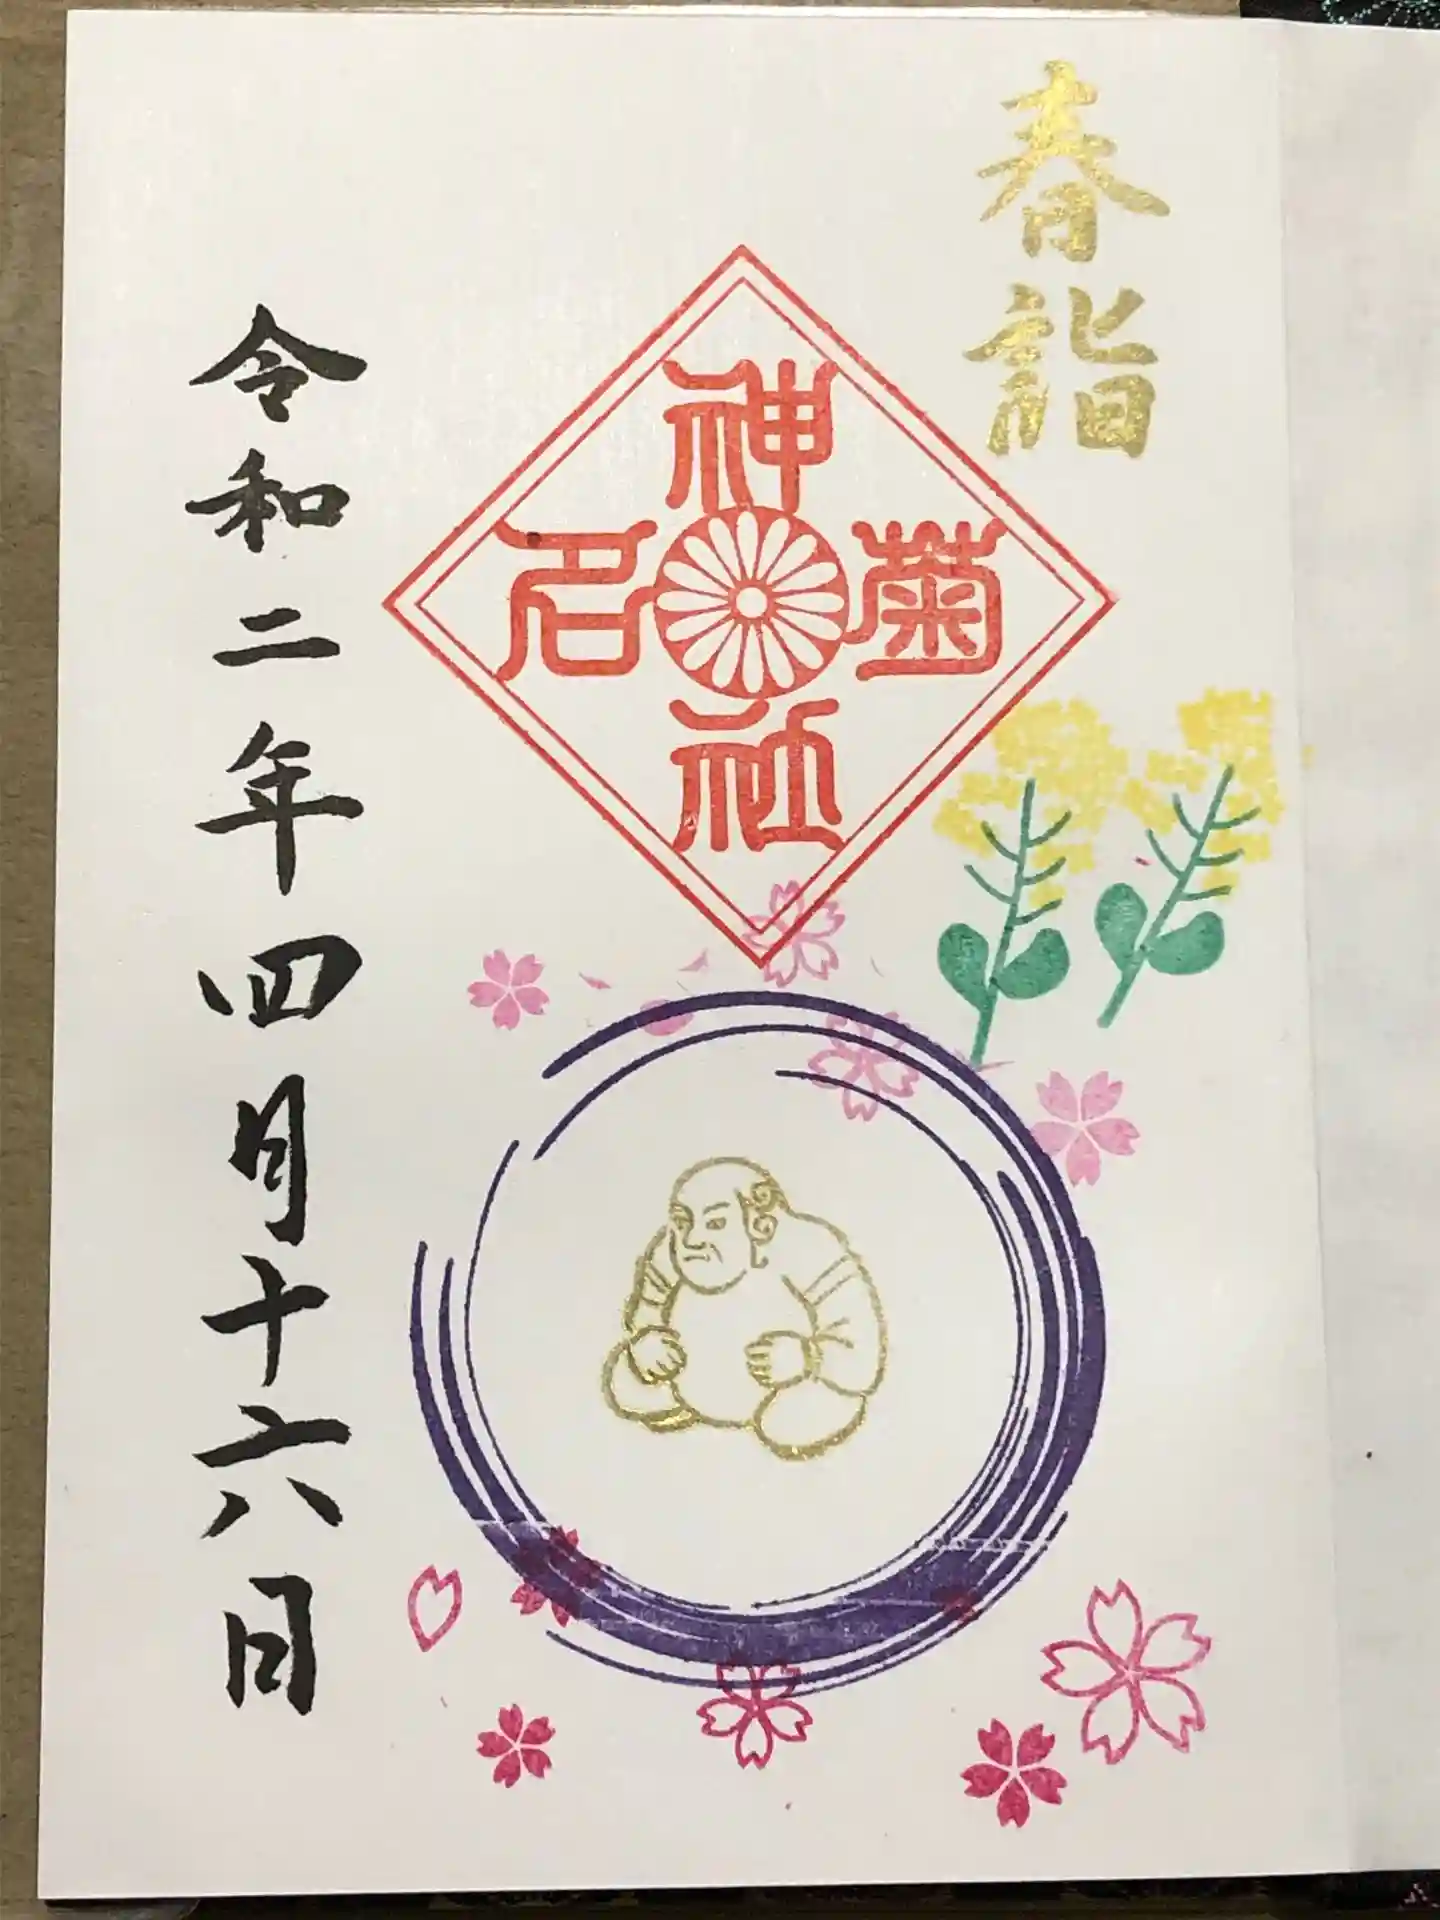 春詣
菊名神社
令和二年四月十六日